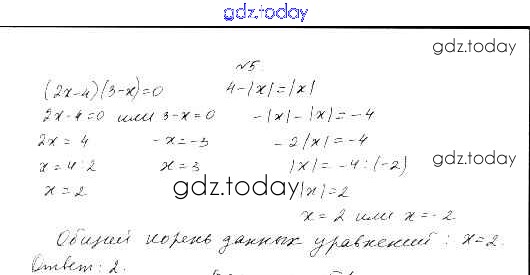 gdz.today
gdz.today
№5
(2x-4)(3-x)=0 4-|x|=|x|
2x-4=0 или 3-x=0 -|x|-|x|=-4
2x=4 -x=-3 -2|x|=-4
x=4:2 x=3 |x|=-4:(-2)
gdz.today
x=2 |x|=2
gdz.today
x=2 или x=-2
Общий корень данных уравнений: x=2.
Ответ: 2.